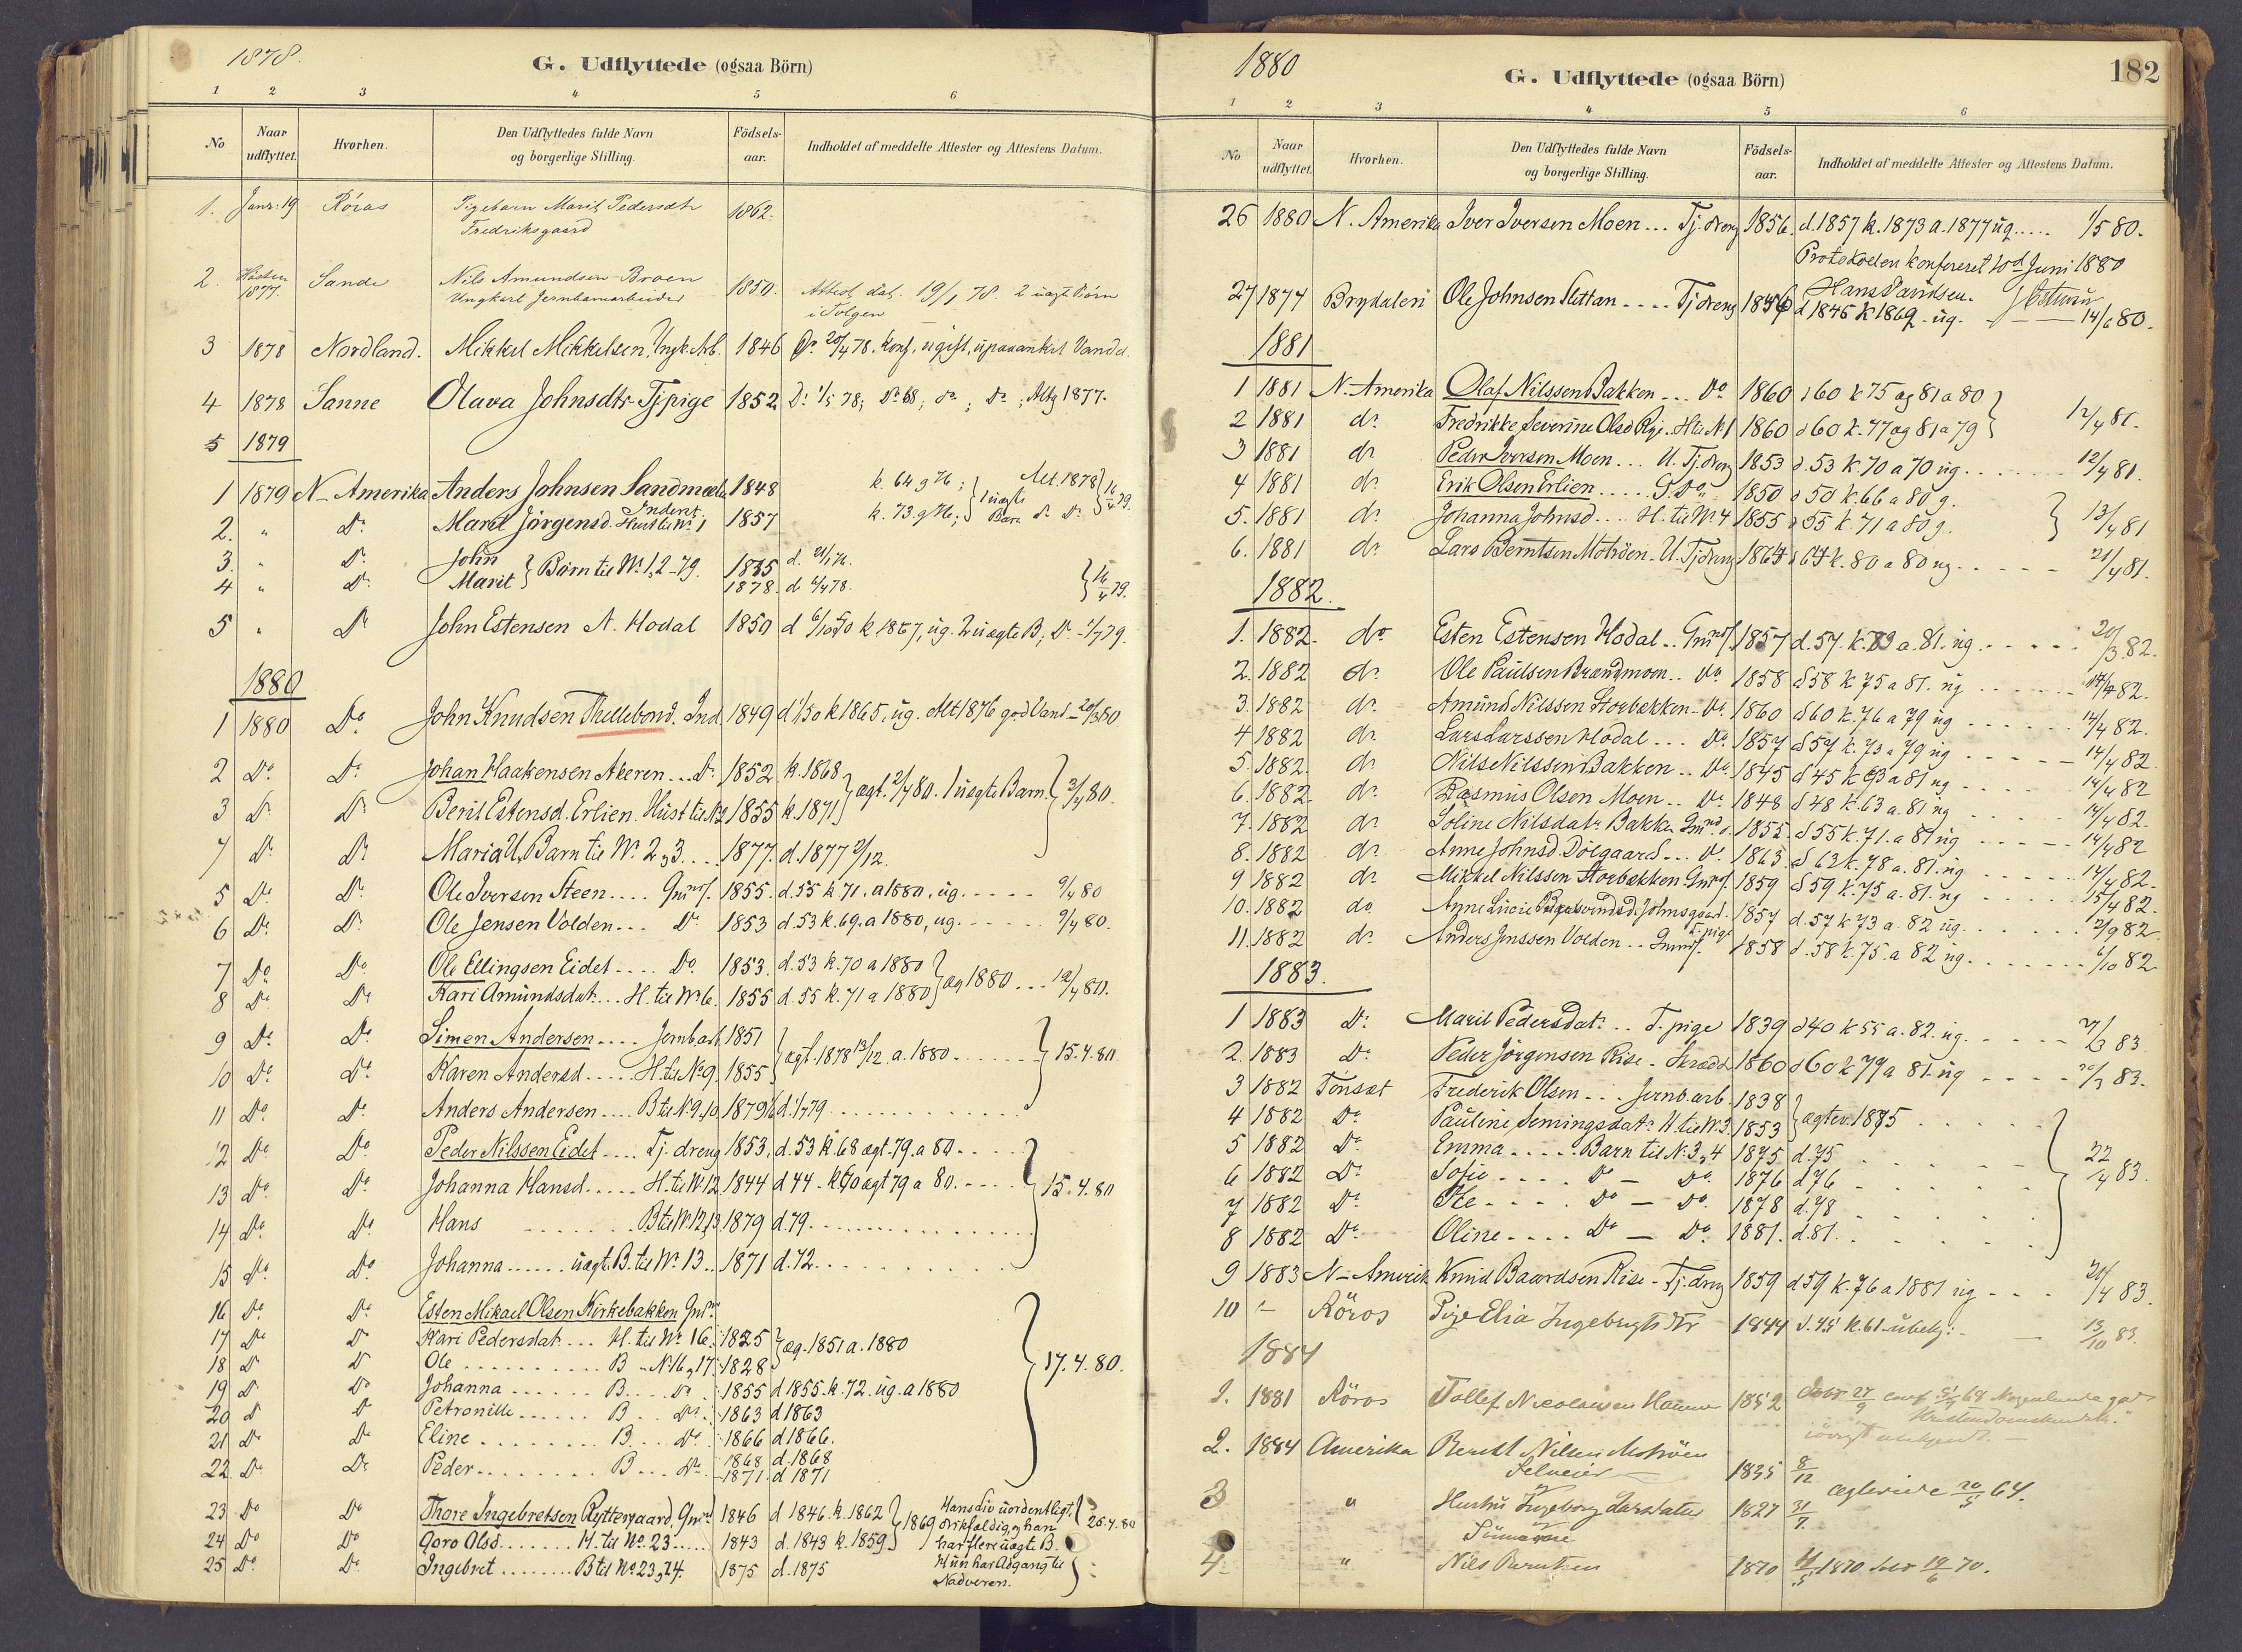 1878.
G. Udflyttede (ogsaa Börn)
1 2 3 4 5 6
No Naar udflyttet. Hvorhen. Den Udflyttedes fulde Navn og borgerlige Stilling. Födsels-aar. Indholdet af meddelte Attester og Attestens Datum.
1. Janr. 19 Röros Pigebarn Marit Pedersdtr 1862.
Fredriksgaard
2. Hösten 1877. Sande Nils Amundsen Broen 1850. Attest dat. 19/1 78. 2 uægte Börn
Ungkarl Jernbanearbeider i Tolgen
3 1878 Nordland. Mikkel Mikkelsen, Ungk. Arb. 1846 Do 20/4 78. Konf. ugift, upaaanket Vandel.
4 1878 Sanne Olava Johnsdtr Tjpige 1852 Do 1/5 78; Do 68, do; Do; Altg 1877.
5 1879
1 1879 N-Amerika Anders Johnsen Sandmæl 1848 k. 64 g 76; Alt. 1878 16/4 79.
Inderst
2. " Do Marit Jörgensd. Hust. til No 1 1857 k. 73. g 76; 1 uægte Barn do Do
3. " Do John 1875 d.
Börn til No 1, 2 - 79.
4 " Do Marit 1878. d 78. 16/4 79.
5 " Do John Estensen N. Hodal 1850 d 6/10 50 k 1867, ug. 2 uægte B; Do 1/7 79.
1880
1 1880 Do John Knudsen Thellebond. Ind. 1849 d 50 k 1865, ug. Alt 1876 god Vand - 20/3 80
2 Do Do Johan Haakensen Akeren ... Do 1852 k. 1868
ægt. 2/1 80. 1 uægte Barn. 3/4 80.
3 Do Do Berit Estensd. Erlien. Hust til No 2 1855 k. 1871
4 Do Do Maria U. Barn til No 2, 3.... 1877. d. 1877 2/12.
5 Do Do Ole Iversen Steen .... Gmnsf. 1855. d. 55 k 71. a 1880, ug. ---- 9/4 80
6 Do Do Ole Jensen Volden ... Do 1853 d. 53 k. 69. a 1880, ug. ---- 9/4 80.
7 Do Do Ole Ellingsen Eidet .... Do 1853. d. 53 k. 70 a 1880
æg 1880 ... 12/4 80.
8 Do Do Kari Amundsdat ... H. til No 6. 1855 d. 55 k. 71 a 1880
9 Do Do Simen Andersen .... Jernb.arb. 1851
ægt. 1878 13/12 a. 1880. ..... 15.4.80.
10 Do Do Karen Andersd ..... H. til No 9. 1855
11 Do Do Anders Andersen .... B til No 9, 10. 1879
12 Do Do Peder Nilssen Eidet .... Tj. dreng 1853. d. 53 k. 68 ægt. 79. a 80. ....
13 Do Do Johanna Hansd ..... H. til No 12. 1844 d 44. k 60 ægt 79 a 80. .... 15.4.80
14 Do Do Hans ........ B til No 12, 13. 1879 d. 79. ........
15 Do Do Johanna ...... uægt. B. til No 13.. 1871 d. 72. ........
16 Do Do Esten Mikael Olsen Kirkebakken Gmnd
17 Do Do Kari Pedersdat... H. til No 16. 1825
æg. 1851 a. 1880
18 Do Do Ole .......... B - No 16, 17. 1828 17.4.80.
19 Do Do Johanna ...... B.... Do 1855 d 1855. k. 72. ug. a 1880
20 Do Do Petronille ...... B.. Do. 1863 d 1863
21 Do Do Eline ........ B... Do. 1866 d 1866.
22 Do Do Peder ........ B... Do. 1868 d. 1868
1871. d 1871
23 Do Do Thore Ingebretsen Ryttergaard, Gmnd 1846 d 1846. k. 1862 1869 Hans Liv uordentligt,
drikfældig, han 26.4.80
24 Do Do Goro Olsd ....... H. til No. 23..... 1843 d. 1843 k. 1859. har flere uægt B.
25 Do Do Ingebret ........ B til No 23, 24. 1875 d. 1875 Hun har Adgang til
Nadveren.
1880
G. Udflyttede (ogsaa Börn) 182
1 2 3 4 5 6
No Naar udflyttet. Hvorhen. Den Udflyttedes fulde Navn og borgerlige Stilling. Födsels-aar. Indholdet af meddelte Attester og Attestens Datum.
26 1880 N. Amerika Iver Iversen Moen ... Tj. dreng 1856. d. 1857 k. 1873 a. 1877 ug..... 1/5 80.
Protokollen konfereret 10d Juni 1880
Hans Davidsen.
27 1877 Brydalen Ole Johnsen Slettan .... Tj dreng 1846 d 1845 k 1862 ug. - 14/6 80.
1881
1 1881 N-Amerika Olaf Nilssen Bakken ... Do 1860 d 60 k 75 æg 81 a 80
12/4 81.
2 1881 do Fredrikke Severine Olsd Rye. H til No 1 1860 d 60 k. 77 æg 81 a 79
3 1881 do Peder Iversen Moen ... U. Tj. dreng 1853 d. 53 k. 70 a 70 ug. ..... 12/4 81.
4 1881 do Erik Olsen Erlien ..... S. Do 1850 d 50 k. 66 a 80 g.
13/4 81
5. 1881 do Johanna Johnsd .... H. til No 4 1855 d 55 k. 71 a 80 g.
6. 1881 do Lars Berntsen Motröen - U. Tj dreng 1864 d 64 k. 80 a 80 ug. ..... 21/4 81.
1882.
1. 1882. do Esten Estensen Hodal .. Gmnsf. 1857 d. 57. k. 73 a. 81. ug ..... 20/3 82.
2. 1882 do Ole Paulsen Brændmoen .. Do 1858 d 58 k. 75 a 81. ug ..... 14/4 82.
3. 1882 do Amund Nilssen Storbækken - Do 1860 d 60 k. 76 a 79 ug ..... 14/4 82.
4 1882 do Lars Larssen Hodal ... Do 1857 d 57 k. 73 a 79 ug ..... 14/4 82
5. 1882. do Nils Nilssen Bakken .. Do 1845 d 45 k 63 a 81 ug ..... 14/4 82
6. 1882. do Rasmus Olsen Moen .. Do 1848 d 48 k. 63 a. 81 ug ..... 14/4 82.
7. 1882 do Joline Nilsdatr Bakken Gmnd. 1855. d 55 k. 71. a 81 ug ..... 14/4 82
8. 1882 do Anne Johnsd. Dölgaard ... Do 1863. d 63 k. 78 a. 81. ug ..... 14/4 82.
9 1882 do Mikkel Nilssen Storbækken. Gmnsf. 1859 d 59 k. 75 a. 81. ug ..... 15/4 82.
10. 1882 do Anne Lucie Johnsgaard. 1857 d. 57 k 73 a. 82 ug. ..... 2/9 82
T. pige
11. 1882 do Anders Jenssen Volden .. Gmnsf. 1858 d. 58 k. 75. a 82 ug. ..... 6/10 82
1883.
1 1883 Do Marit Pedersdat. .. T. pige 1839 d 40 k 55 a. 82. ug. ..... 83
2. 1883 Do Peder Jörgensen Rise - Skrædd 1860 d 60 k 79 a 81 ug .... 20/3 83.
3 1882 Tönsæt Frederik Olsen ... Jernb.arb. 1838
ægtev. 1875 .....
4 1882 Do Pauline Semingsdatr H. til No 3. 1853
5 1882 Do Emma ..... Barn til No 3, 4 1875 d. 75 22/4 83.
6 1882 Do Sofie .... Do - Do. 1876 d 76
7 1882 Do Ole .... Do - Do. 1878 d. 78
8 1882 Do Oline .... Do - Do. 1881. d. 81.
9 1883 N-Amerik Knud Baardsen Rise - Tj. dreng 1859 d 59 k. 76 a 1881 ug ... 21/4 83.
10 " Röros Pige Elia Ingebrigtsdtr 1844 d. 45 k. 61 - ubekj: - 13/10 83.
1884
1. 1881 Röros Tollef Nicolaisen 1852 conf 64
Kristendomskundsk."
iövrigt ubekjendt. -
2. 1884 Amerika Berndt Nilsen Motröen
Selveier - 1835 8/12
ægteviede 20/5 64.
3 " Hustru Ingeborg Larsdatter 1827 31/7.
4. " Nils Berntsen 1870 1870 19/6 70.